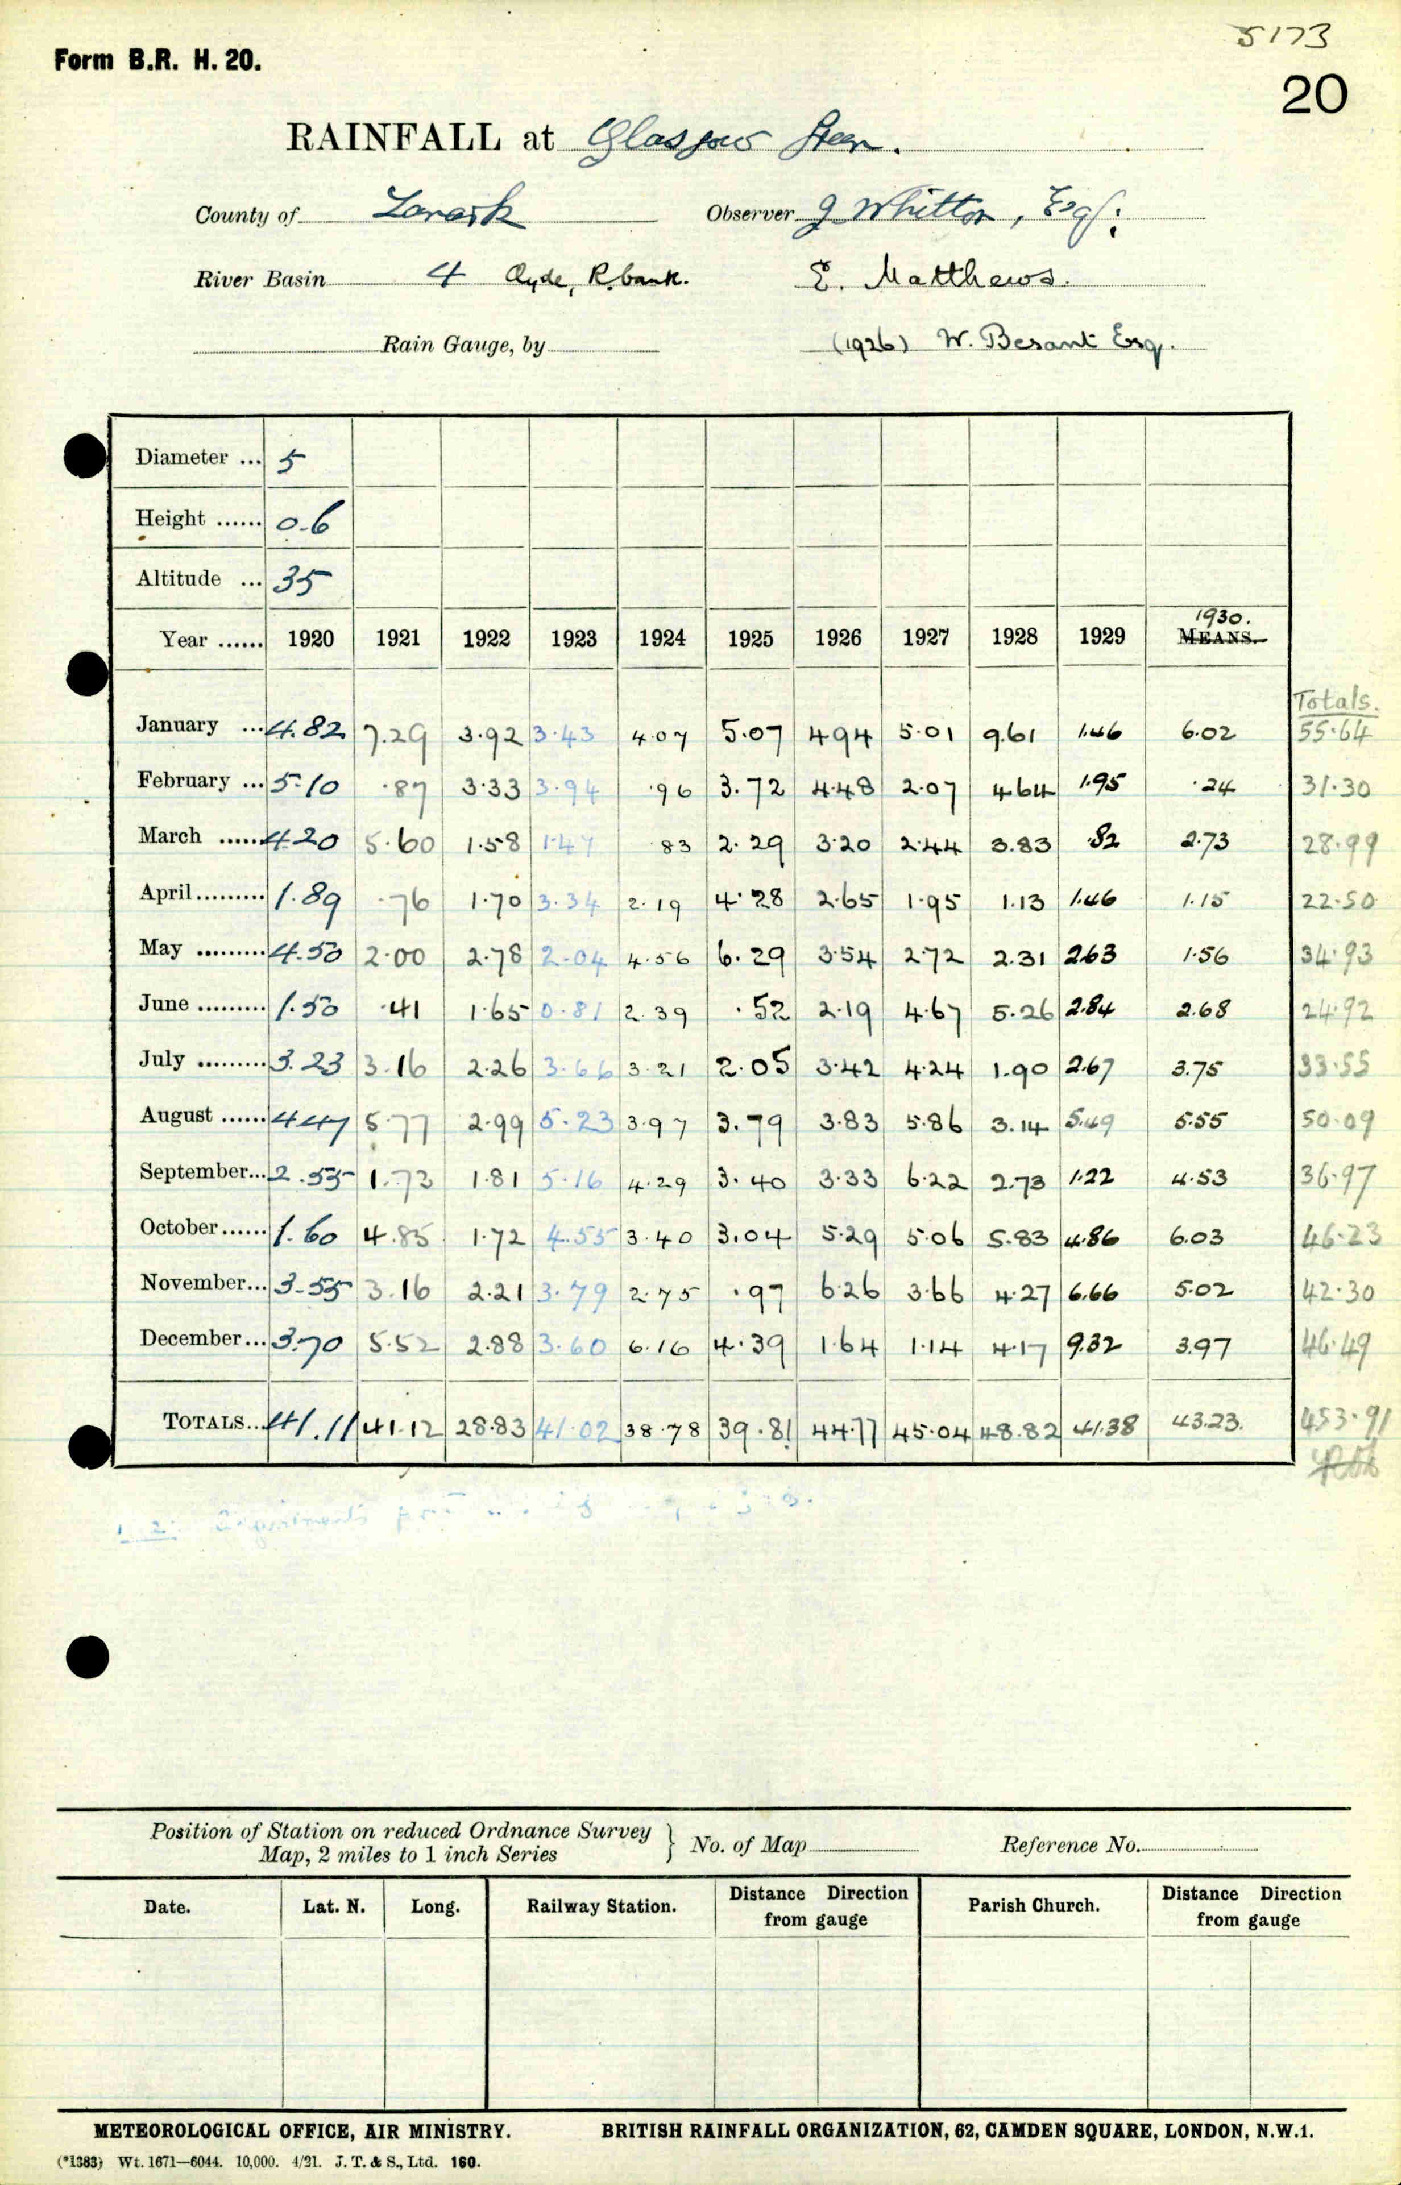 5173
Form B.R. H. 20.
20
RAINFALL at Glasgow Green.
County of Lanark Observer J Whitton, Esq:
River Basin 4 Clyde, R. bank. E. Matthews.
Rain Gauge, by (1926) W. Besant Esq.
Diameter ... 5
Height ...... 0.6
Altitude ... 35
1930.
Year ...... 1920 1921 1922 1923 1924 1925 1926 1927 1928 1929 MEANS.
Totals.
January ... 4.82 7.29 3.92 3.43 4.07 5.07 4.94 5.01 9.61 1.46 6.02 55.64
February ... 5.10 .87 3.33 3.94 .96 3.72 4.48 2.07 4.64 1.95 .24 31.30
March ...... 4.20 5.60 1.58 1.47 83 2.29 3.20 2.44 3.83 .82 2.73 28.99
April ......... 1.89 .76 1.70 3.34 2.19 4.28 2.65 1.95 1.13 1.46 1.15 22.50
May ......... 4.50 2.00 2.78 2.04 4.56 6.29 3.54 2.72 2.31 2.63 1.56 34.93
June ......... 1.50 .41 1.65 0.81 2.39 .52 2.19 4.67 5.26 2.84 2.68 24.92
July ......... 3.23 3.16 2.26 3.66 3.21 2.05 3.42 4.24 1.90 2.67 3.75 33.55
August ...... 4.47 5.77 2.99 5.23 3.97 3.79 3.83 5.86 3.14 5.49 5.55 50.09
September... 2.55 1.73 1.81 5.16 4.29 3.40 3.33 6.22 2.73 1.22 4.53 36.97
October...... 1.60 4.85 1.72 4.55 3.40 3.04 5.29 5.06 5.83 4.86 6.03 46.23
November... 3.55 3.16 2.21 3.79 2.75 .97 6.26 3.66 4.27 6.66 5.02 42.30
December... 3.70 5.52 2.88 3.60 6.16 4.39 1.64 1.14 4.17 9.32 3.97 46.49
TOTALS... 41.11 41.12 28.83 41.02 38.78 39.81 44.77 45.04 48.82 41.38 43.23. 453.91
Position of Station on reduced Ordnance Survey
Map, 2 miles to 1 inch Series } No. of Map Reference No.
Date. Lat. N. Long. Railway Station. Distance Direction from gauge Parish Church. Distance Direction from gauge
METEOROLOGICAL OFFICE, AIR MINISTRY. BRITISH RAINFALL ORGANIZATION, 62, CAMDEN SQUARE, LONDON, N.W.1.
(*1383) Wt. 1671—6044. 10,000. 4/21. J. T. & S., Ltd. 160.